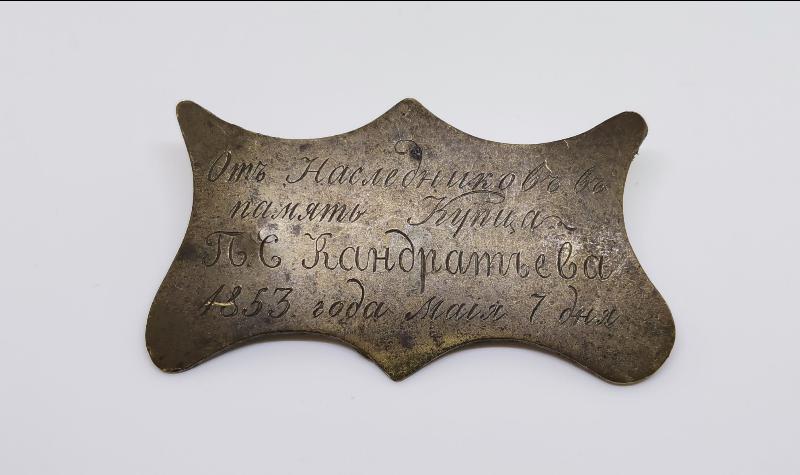 Отъ Наследниковъ въ
память Купца
П.С Кандратьева
1853 года Маія 7 дня